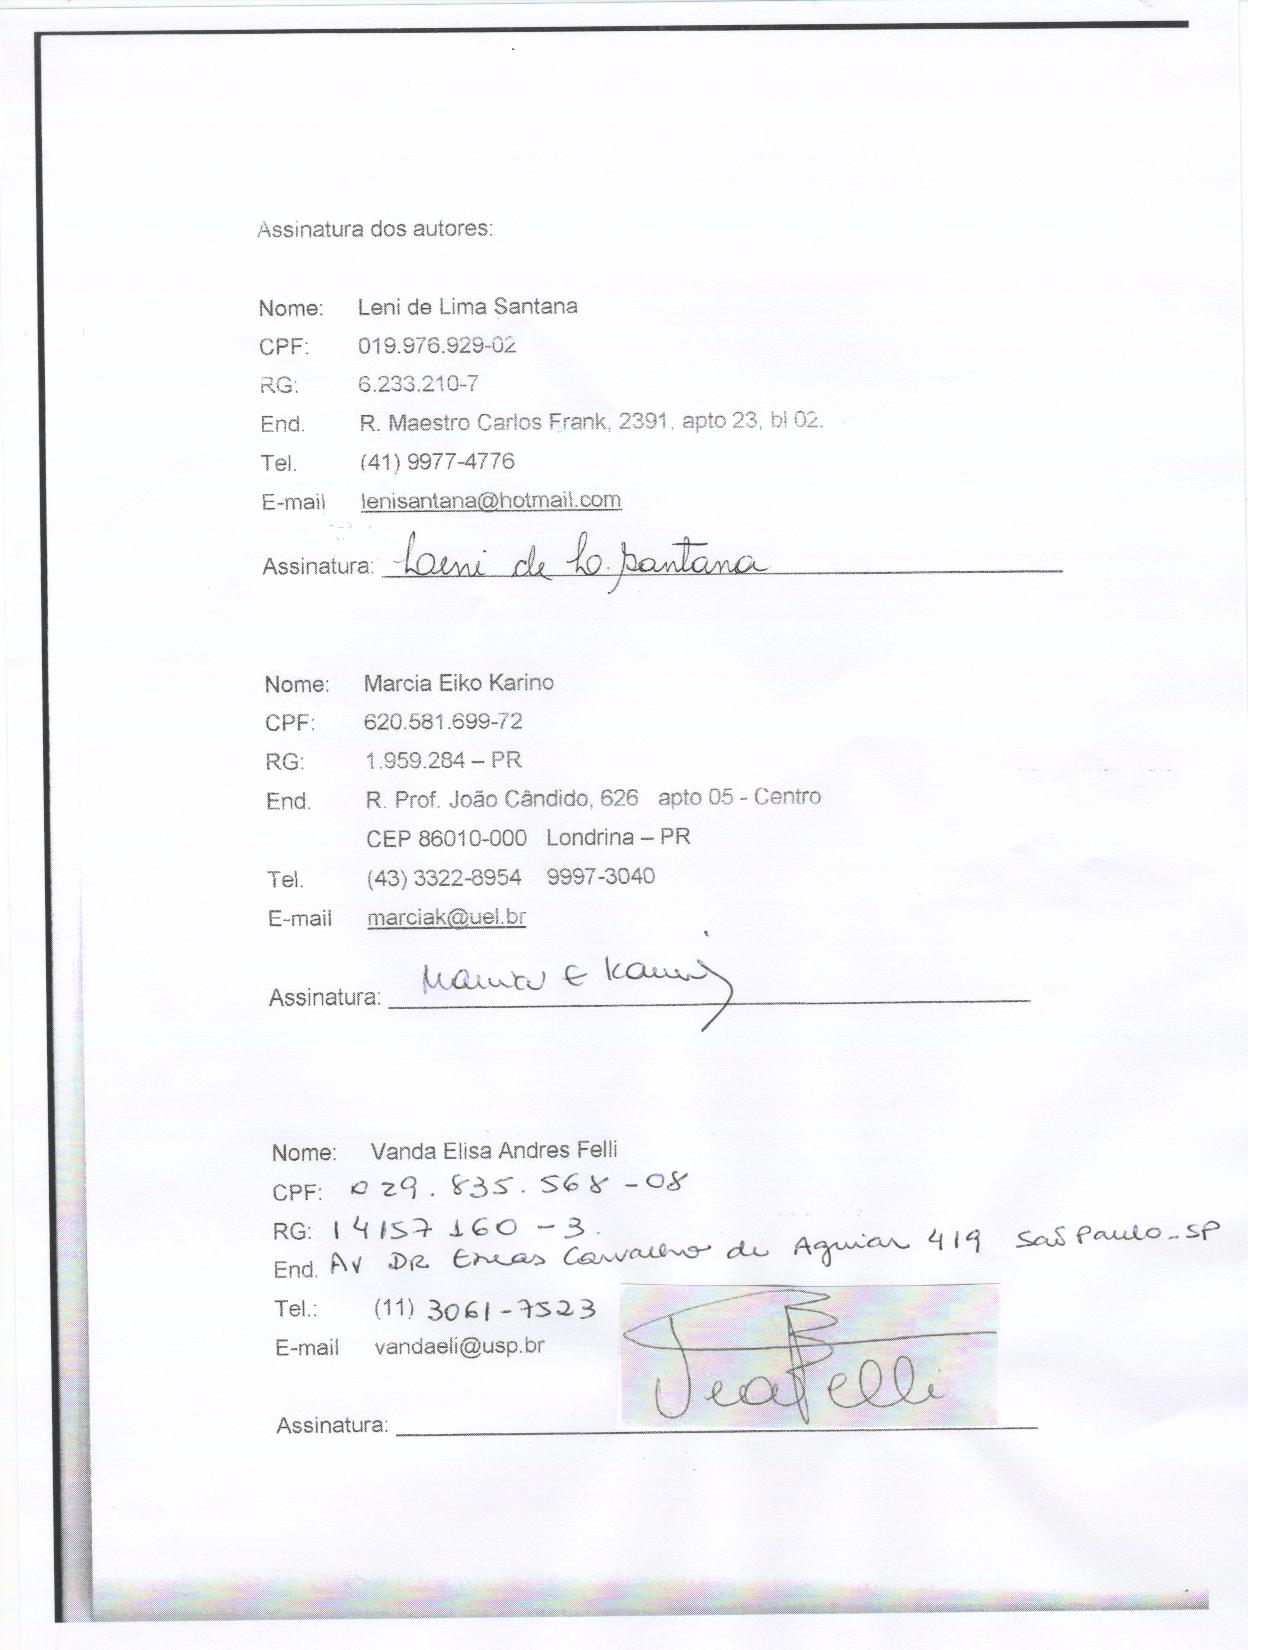 Assinatura dos autores:
Nome: Leni de Lima Santana
CPF: 019.976.929-02
RG: 6.233.210-7
End. R. Maestro Carlos Frank, 2391, apto 23, bl 02.
Tel. (41) 9977-4776
E-mail lenisantana@hotmail.com
Assinatura: Leni de L. Santana
Nome: Marcia Eiko Karino
CPF: 620.581.699-72
RG: 1.959.284 – PR
End. R. Prof. João Cândido, 626 apto 05 - Centro
CEP 86010-000 Londrina – PR
Tel. (43) 3322-8954 9997-3040
E-mail marciak@uel.br
Assinatura: Marcia E Karino
Nome: Vanda Elisa Andres Felli
CPF: 029.835.568-08
RG: 14157160-3.
End. AV DR. Eneas Carvalho de Aguiar 419 São Paulo-SP
Tel.: (11) 3061-7523
E-mail vandaeli@usp.br
Assinatura: Felli